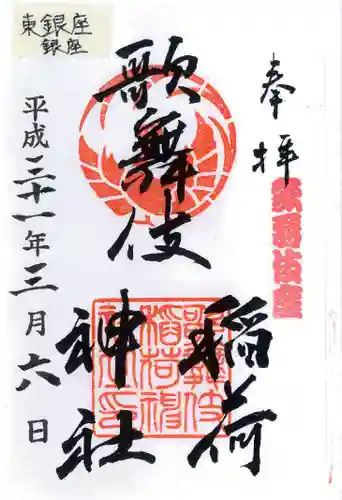 東銀座
銀座
奉拝
歌舞伎座
歌舞伎
稲荷
神社
平成三十一年三月六日
歌舞伎
稲荷神
社之印